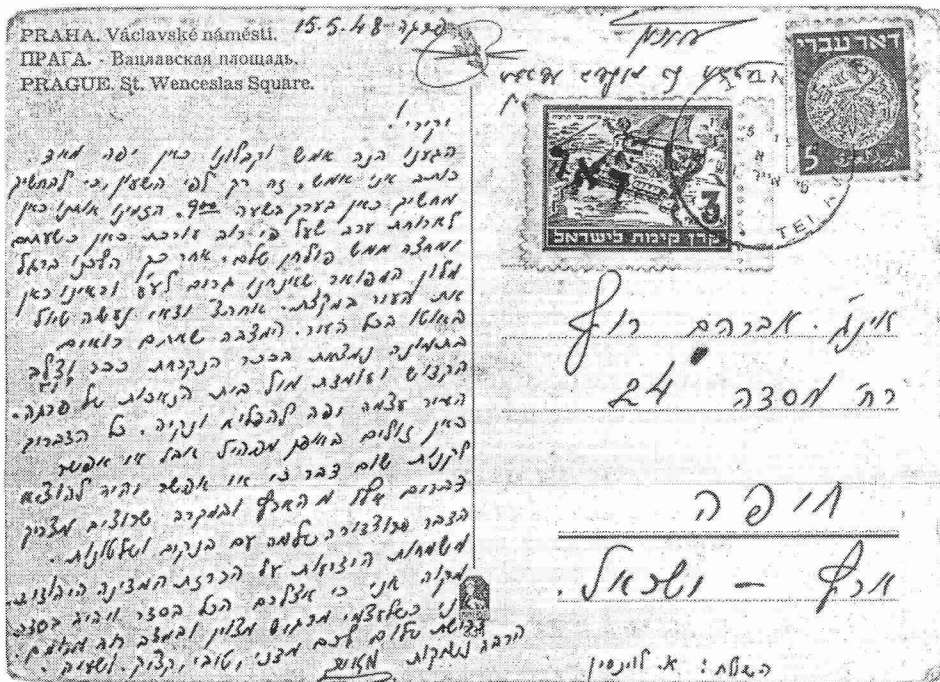 PRAHA. Václavské náměstí.
ПРАГА. - Вацлавская площадь.
PRAGUE. St. Wenceslas Square.
פרגה 15.5.48
יקירי!
הגענו הנה אמש וקבלונו כאן יפה מאד.
כותב אני אמש. זה רק לפי השעון, כי להחשיך
מחשיך כאן בערך בשעה 9⁰⁰. הזמינו אותנו כאן
לארוחת ערב שעל פי רוב עורכת כאן כשעתים
ומחצה ממש פולחן שלם. אחר כך הלכנו ברגל
מלון המפואר שאנחנו גרים וראינו כאן
את העיר במקצת. אחה"צ נעשה טיול
באוטו בכל העיר. המצבה שאתם רואים
בתמונה נמצאת בככר הנקראת ככר וצלב
הקדוש ועומדת מול בית הנאכות של פרגה.
העיר עצמה יפה להפליא ונקיה. כל הדברים
כאן זולים באופן מבהיל אבל אי אפשר
לקנות שום דבר כי אי אפשר יהיה להוציא
דברים אלו מהארץ ובמקרה שרוצים מצריך
הדבר פרוצדורה שלמה עם בנקים ושלטונות.
משמחות הידיעות על הכרזת המדינה היהודית.
מקוה אני כי אצלכם הכל בסדר ויהיה בסדר.
אני כשלעצמי מרגיש מצוין ובמצב רוח מרומם.
דרישת שלום לכם
הרבה נשיקות
דאר עברי
5
דאר
3
קרן קימת לישראל
TEL
אינג'. אברהם
רח' מסדה 24
חיפה
ארץ - ישראל.
השולח: א. לוינסון